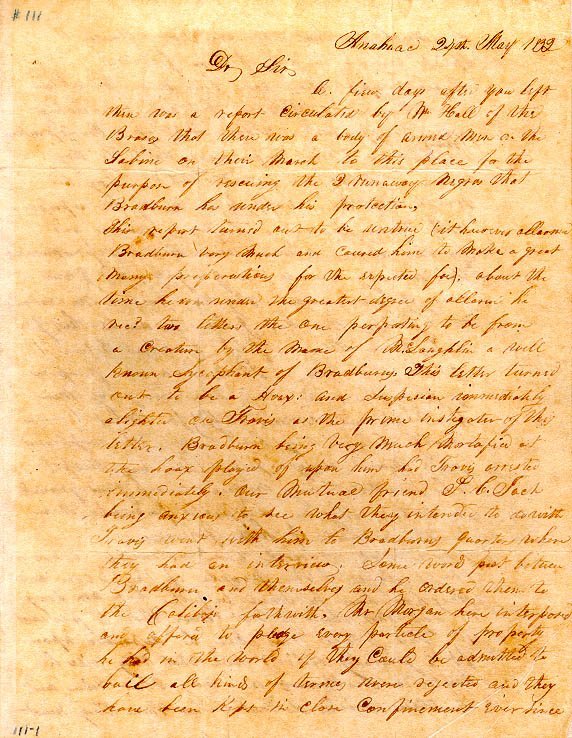 # 111
Anahuac 24th May 1832
Dr Sir
A few days after you left
there was a report circulated by Wm Hall of the
Brasos that there was a body of armed Men on the
Sabine on their March to this place for the
purpose of rescuing the 2 Runaway Negros that
Bradburn has under his protection,
This report turned out to be untrue (it however allarmed
Bradburn very Much and caused him to Make a great
Many preperations for the expected foe). about the
time he was under the greatest degree of allarm he
recd two letters the one perporting to be from
a Creature by the Name of McLaughlin a well
known Sycophant of Bradburns This letter turned
out to be a Hoax: and Suspision immediately
alighted on Travis as the prime instigater of this
letter. Bradburn being very Much Mortafied at
the hoax played of upon him had Travis arrested
immediately. Our Mutual friend P. C. Jack
being anxious to see what they intended to do with
Travis went with him to Bradburns quarters where
they had an interview. Some words past between
Bradburn and themselves and he ordered them to
the Calibos forthwith. Mr Morgan here interposed
and offered to pledge every particle of property
he had in the world if they Could be admitted to
bail all kinds of terms were rejected and they
have been Kept in close Confinement ever since
111-1